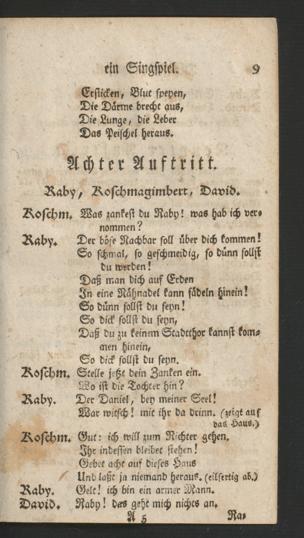 ein Singspiel. 9
Ersticken, Blut speyen,
Die Därme brecht aus,
Die Lunge, die Leber
Das Peischel heraus.
Achter Auftritt.
Raby, Koschmagimbert, David.
Koschm. Was zankest du Raby! was hab ich ver-
nommen?
Raby. Der böse Nachbar soll über dich kommen!
So schmal, so geschmeidig, so dünn sollst
du werden!
Daß man dich auf Erden
In eine Nähnadel kann fädeln hinein!
So dünn sollst du seyn!
So dick sollst du seyn,
Daß du zu keinem Stadtthor kannst kom-
men hinein,
So dick sollst du seyn.
Koschm. Stelle jetzt dein Zanken ein.
Wo ist die Tochter hin?
Raby. Der Daniel, bey meiner Seel!
War witsch! mit ihr da drinn. (zeigt auf
das Haus.)
Koschm. Gut: ich will zum Richter gehen.
Ihr indessen bleibet stehen!
Gebet acht auf dieses Haus
Und laßt ja niemand heraus. (eilfertig ab.)
Raby. Gelt! ich bin ein armer Mann.
David. Raby! das geht mich nichts an.
A 5 Ra-